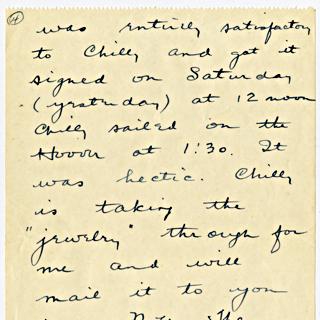 ④
was entirely satisfactory
to Chilly and got it
signed on Saturday
(yesterday) at 12 noon
Chilly sailed on the
Hoover at 1:30. It
was hectic. Chilly
is taking the
"jewelry" through for
me and will
mail it to you